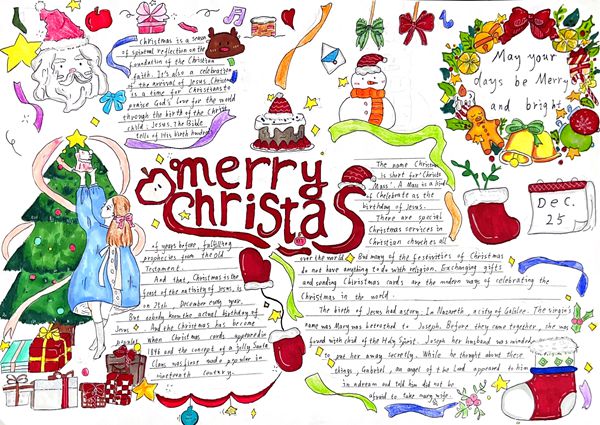 Christmas is a season
of spiritual reflection on the
foundation of the Christian
faith. It's also a celebration
of the arrival of Jesus Christ
is a time for Christians to
praise God's love for the world
through the birth of the Christ
child: Jesus. the Bible
tells of His birth hundreds
of years before, fulfilling
prophecies from the Old
Testament.
And that, Christmas is the
feast of the nativity of Jesus, is
on 25th, December every year.
But nobody know the actual birthday of
Jesus. And the Christmas has become
popular when Christmas cards appeared in
1846 and the concept of a jolly Santa
Claus was first made popular in
nineteenth century.
merry
christas
The name Christmas
is short for "Christ's
Mass". A Mass is a kind
of Chelebrate as the
birthday of Jesus.
There are special
Christmas services in
Christian churches all
over the world. But many of the festivities of Christmas
do not have anything to do with religion. Exchanging gifts
and sending Christmas cards are the modern ways of celebrating the
Christmas in the world.
The birth of Jesus had astory. In Nazareth, a city of Galilee. The virgin's
name was Mary was betrothed to Joseph. Before they came together, she was
found with child of the Holy Spirit. Joseph her husband was minded
to put her away secretly. While he thought about these
things, Gabriel, an angel of the Lord appeared to him
in a dream and told him did not be
afraid to take mary wife.
May your
days be Merry
and bright
Dec.
25